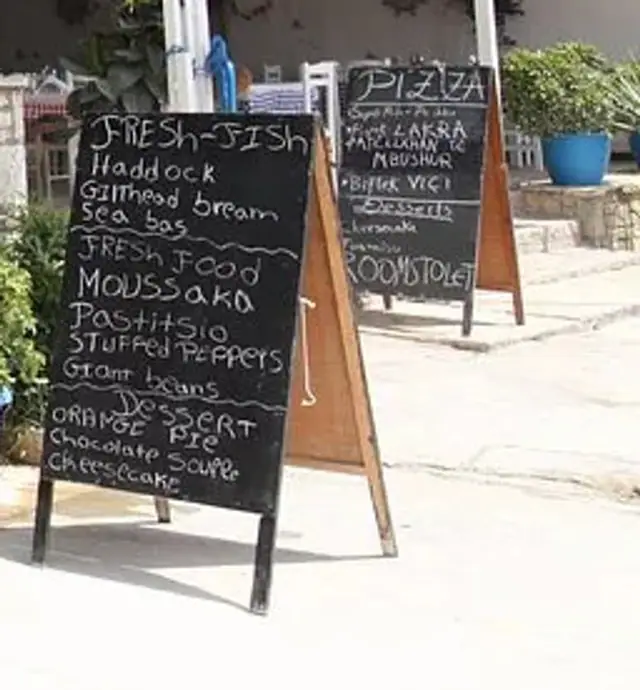 FRESH-FISH
Haddock
GILTHead bream
Sea bas
FRESH FOOD
MOUSSaKa
Pastitsio
STUFFed PEPPERS
GIanT beans
DESSERT
ORANGE PIE
Chocolate Souffle
cheesecake
PIZZA
LAKRA
MBUSHUR
•Biftek VIÇI
Desserts
cheesecake
Tiramisu
ROOMS TOLET